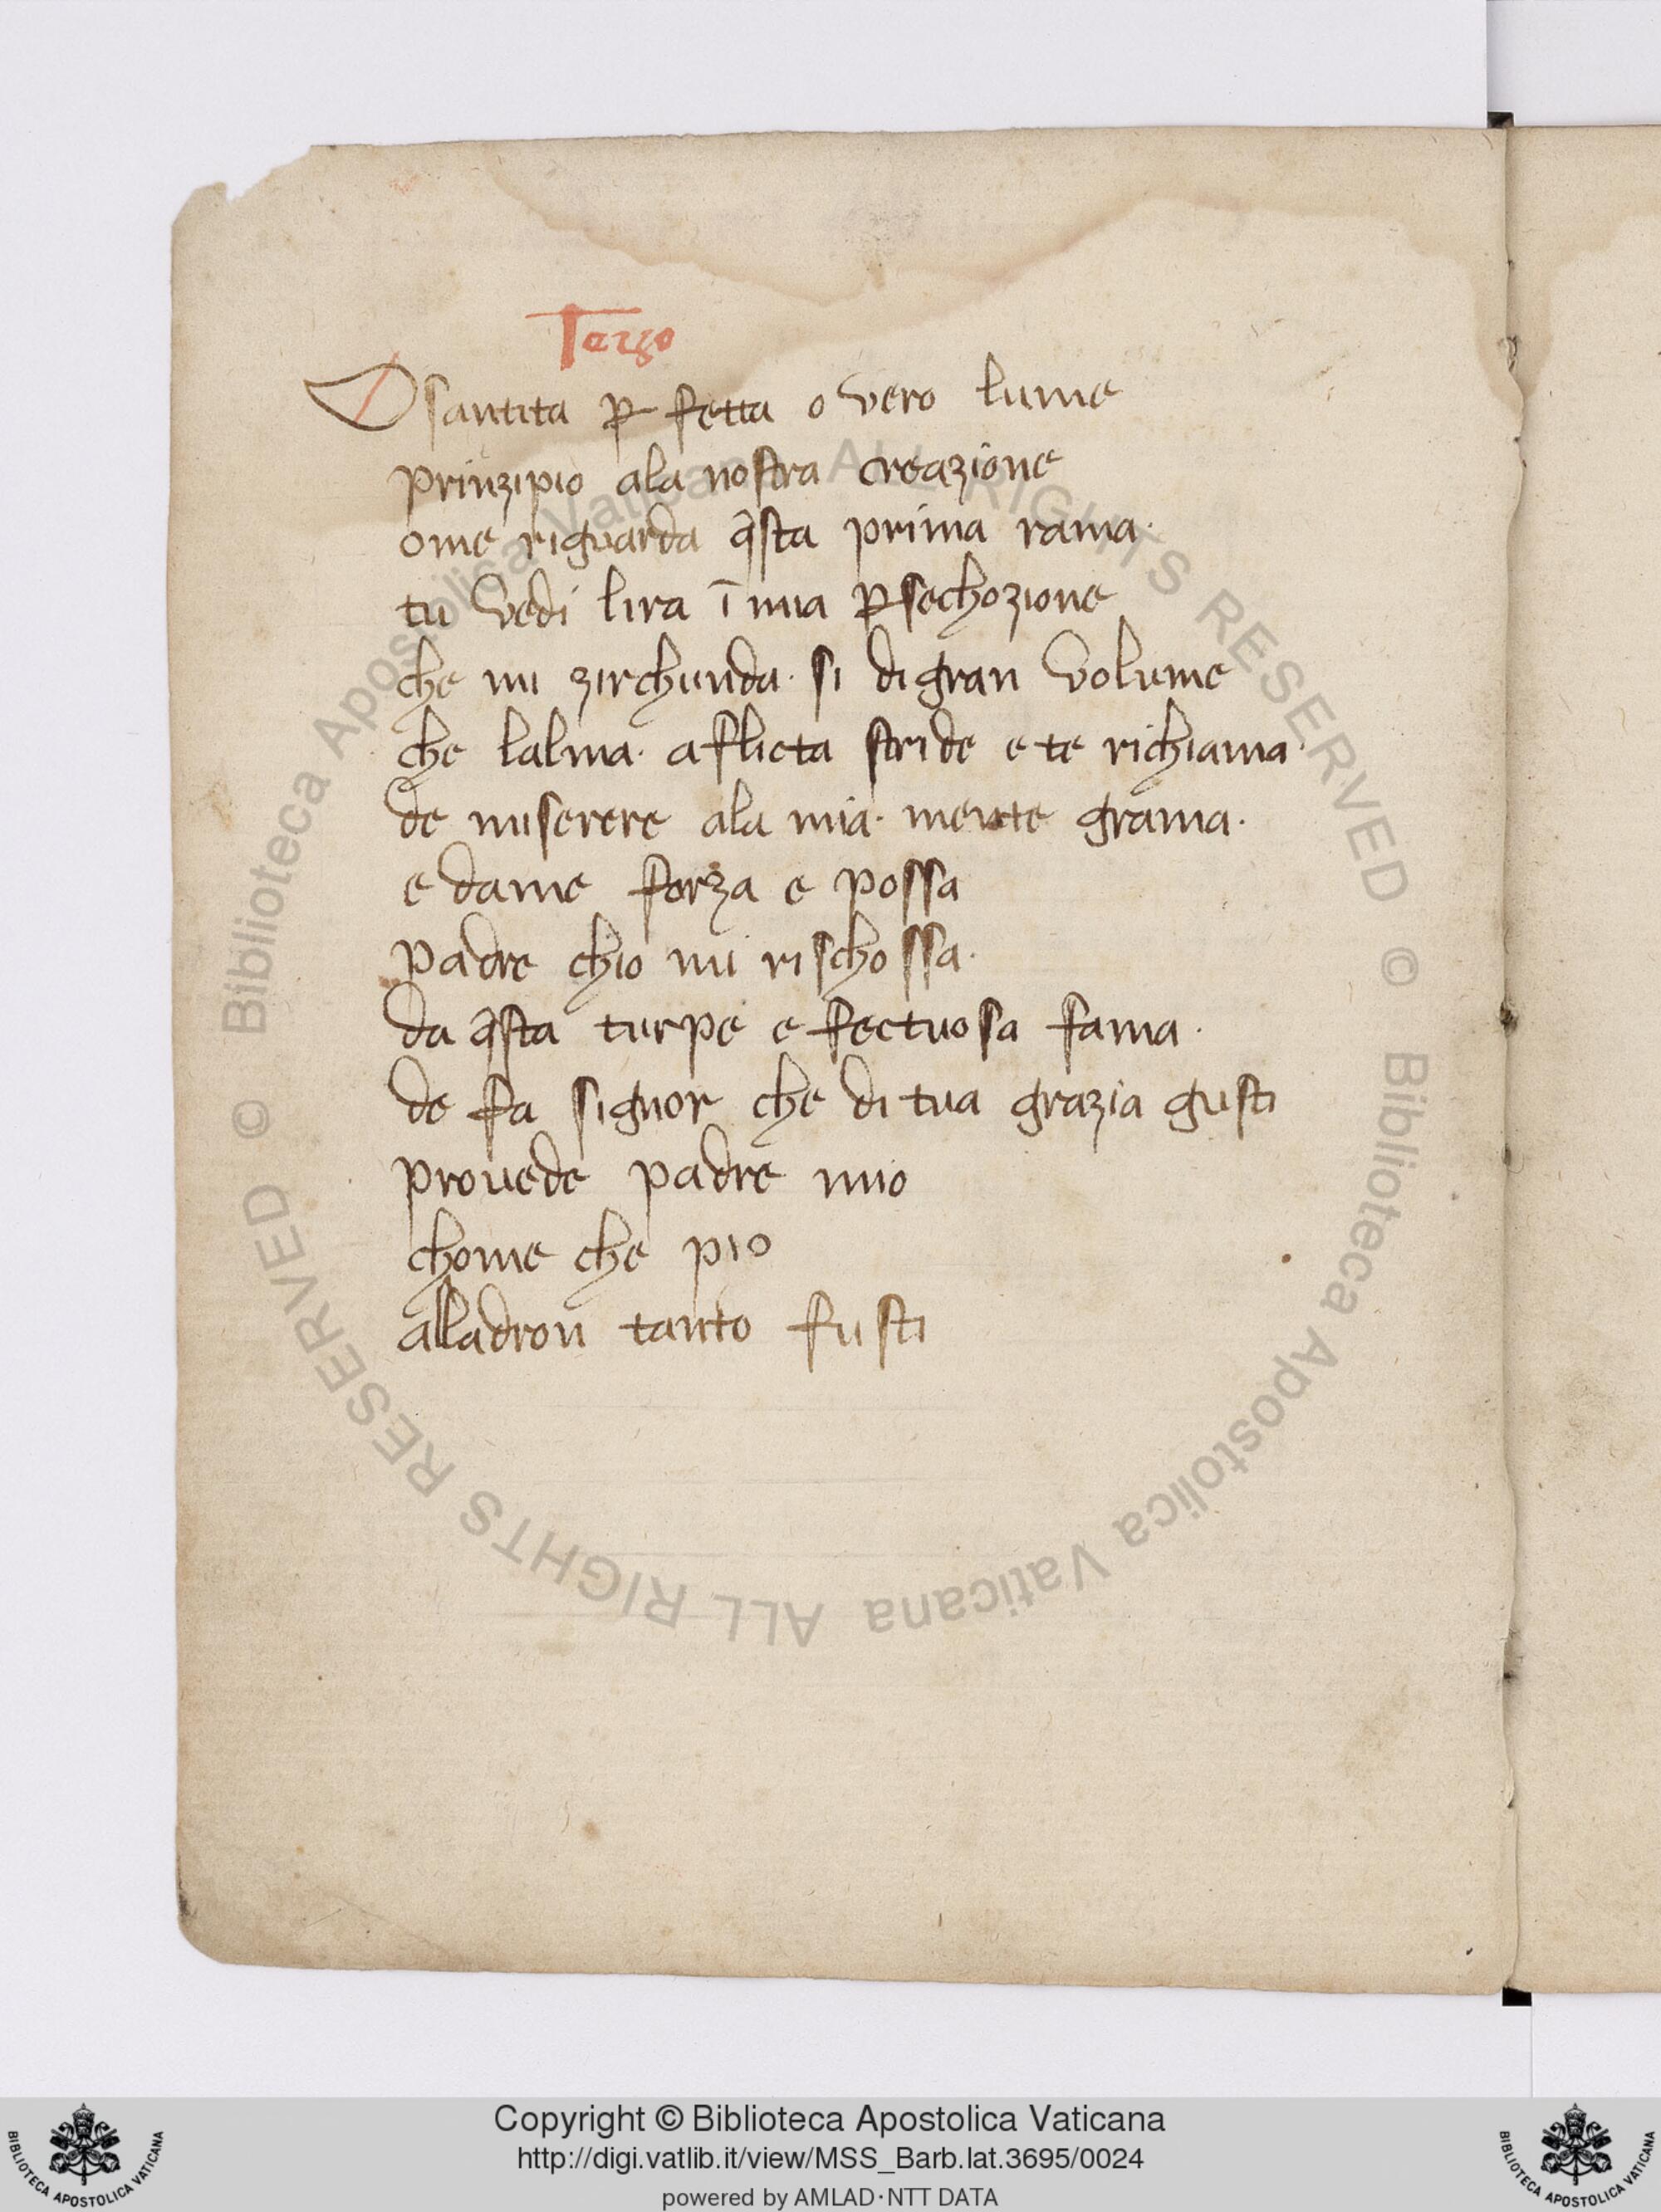 Terzo
O santita ꝑfetta o vero lume
prinzipio ala nostra creazione
ome riguarda q̄sta prima rama·
tu vedi lira ī mia ꝑsechozione
che mi zirchunda· si digran volume
che lalma· aflicta stride e te richiama·
de miserere ala mia· mente grama·
e dame forza e possa
padre chio mi rischossa·
da q̄sta turpe e fectuosa fama·
de fa signor che di tua grazia gusti
prouede padre mio
chome che pio
alladron tanto fusti
© Biblioteca Apostolica Vaticana ALL RIGHTS RESERVED © Biblioteca Apostolica Vaticana ALL RIGHTS RESERVED
Copyright © Biblioteca Apostolica Vaticana
http://digi.vatlib.it/view/MSS_Barb.lat.3695/0024
powered by AMLAD·NTT DATA
BIBLIOTECA APOSTOLICA VATICANA
BIBLIOTECA APOSTOLICA VATICANA